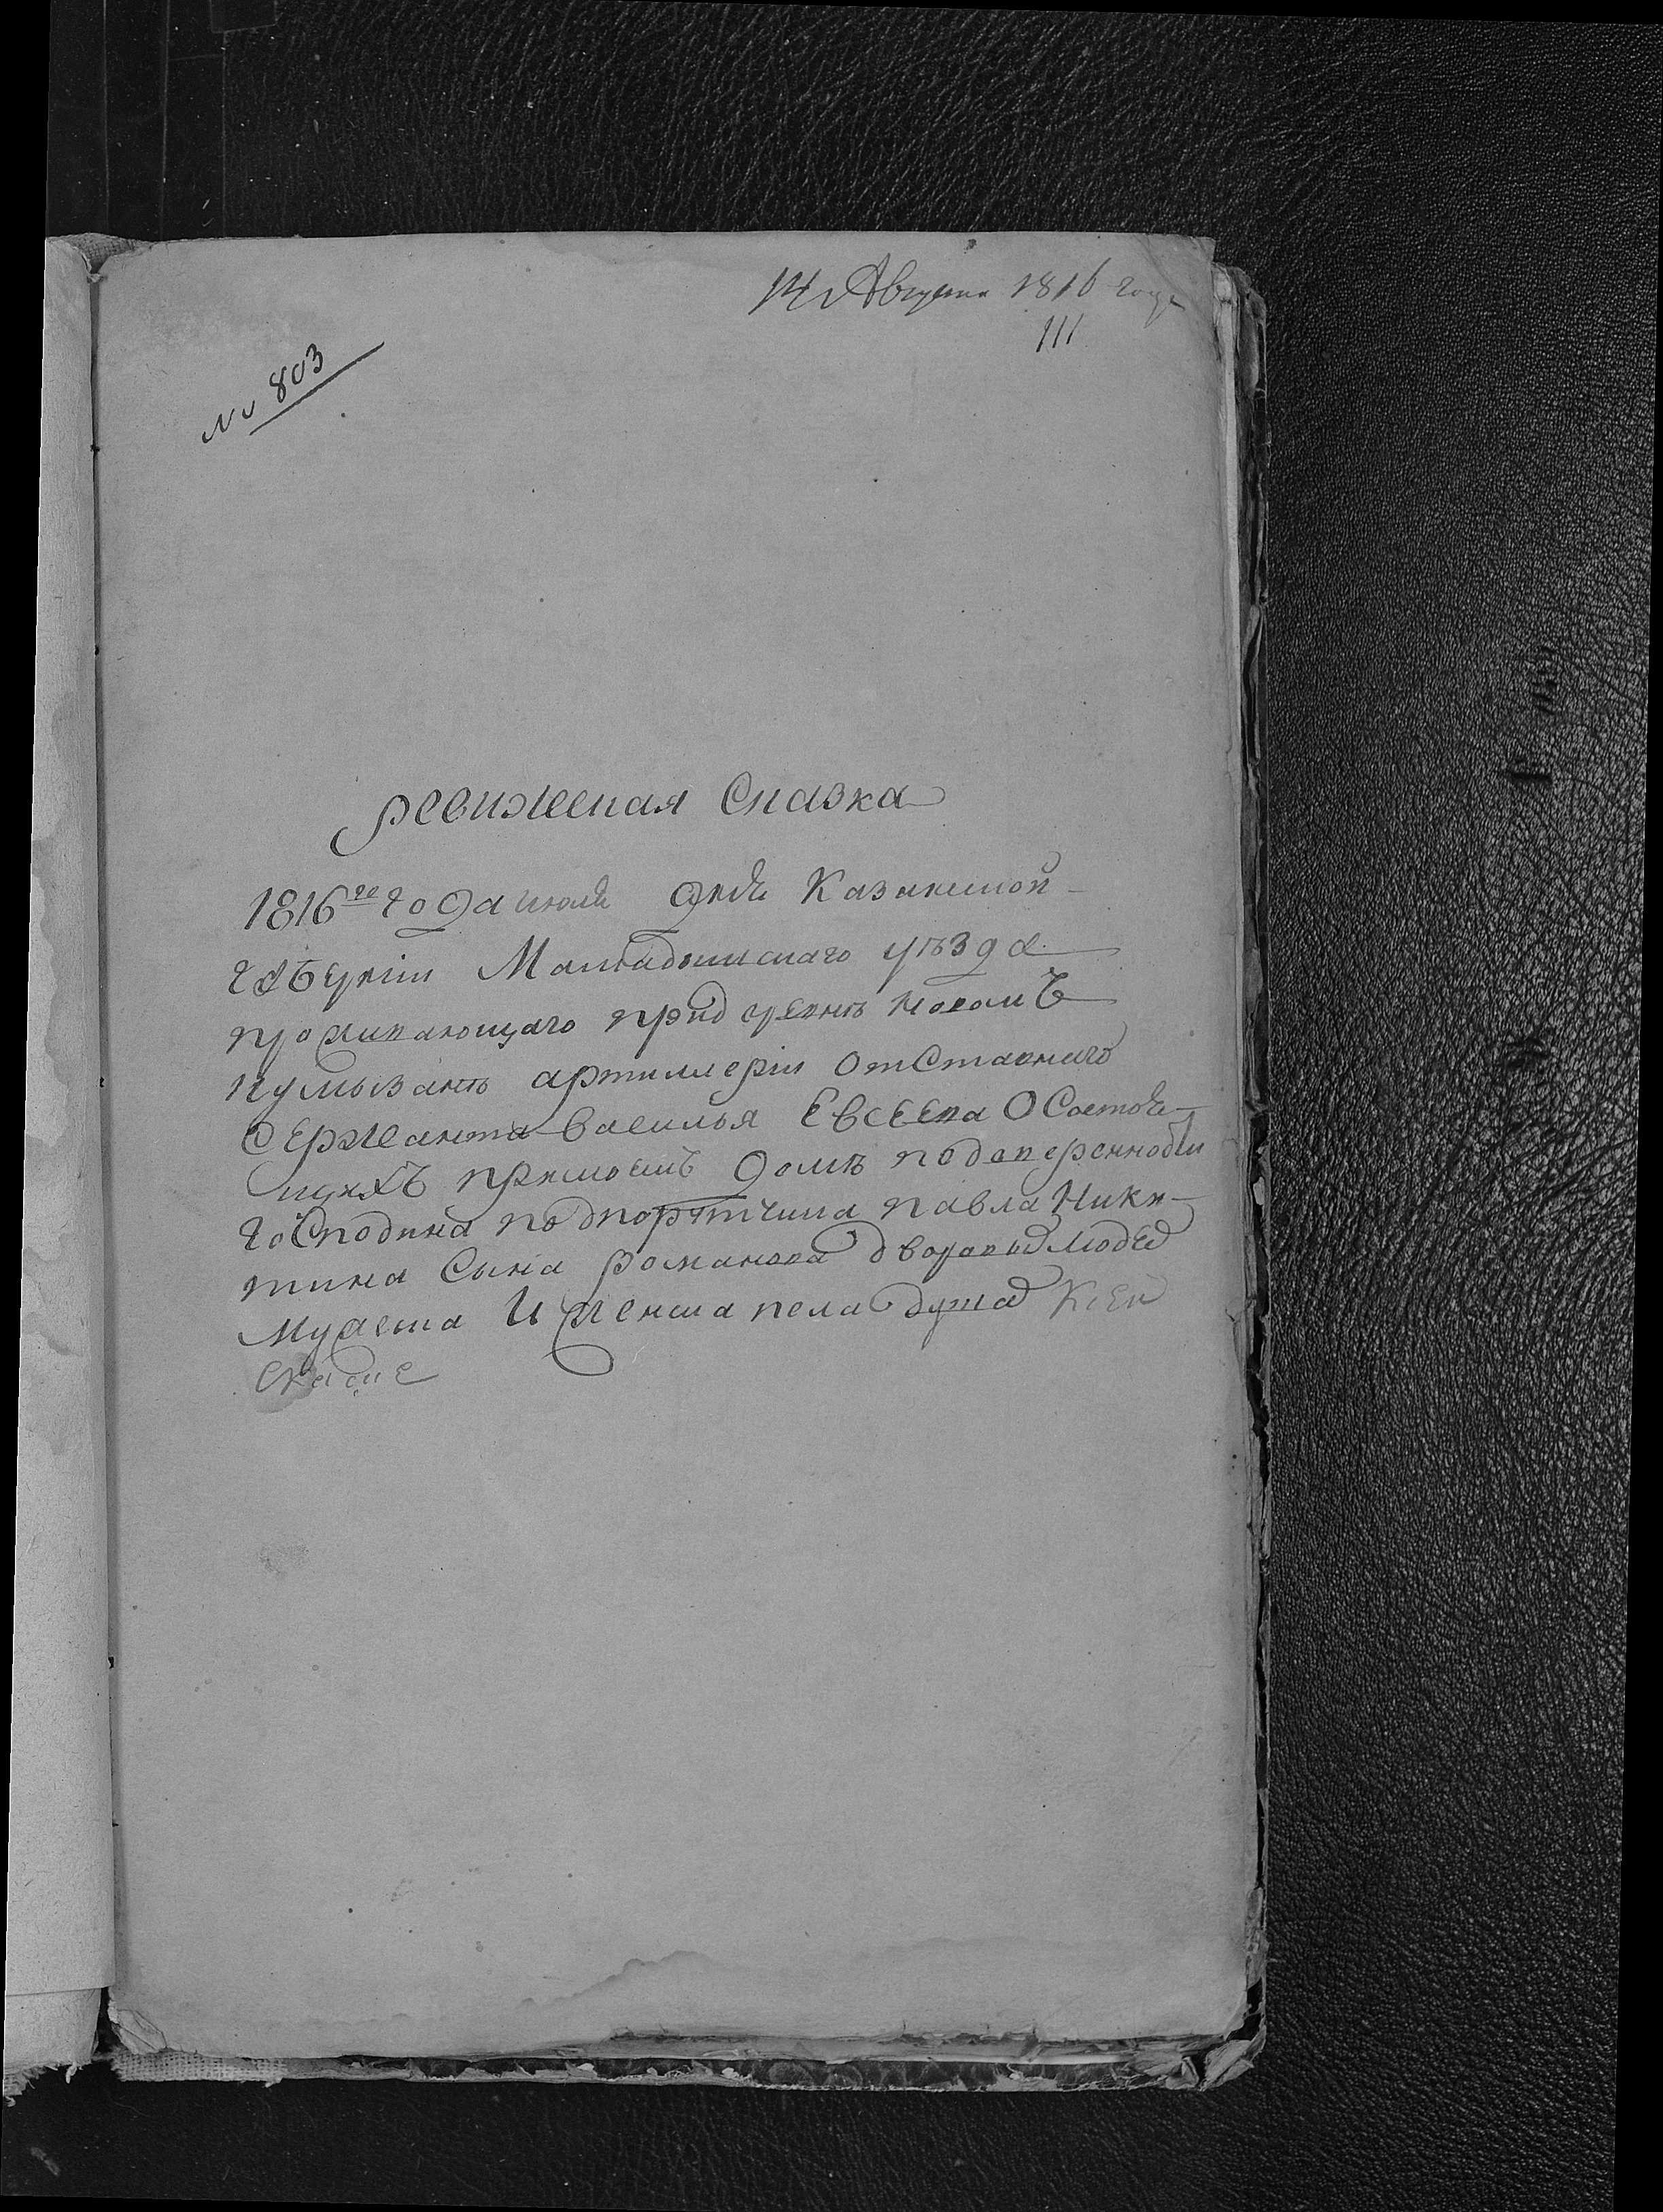 14 Августа 1816 года
111
№ 803
ревижская Сказка
1816го года июля дня Казанской
губернии Мамадышскаго уѣзда
проживающаго при деревнѣ новомъ
кумызанѣ артиллеріи отставнаго
Сержанта василья Евсеева О Состоя-
щихъ при моемъ домѣ по доверенности
господина подпорутчика павла Ники-
тина Сына романова дворовыя люде
мужеска И женска пола душа